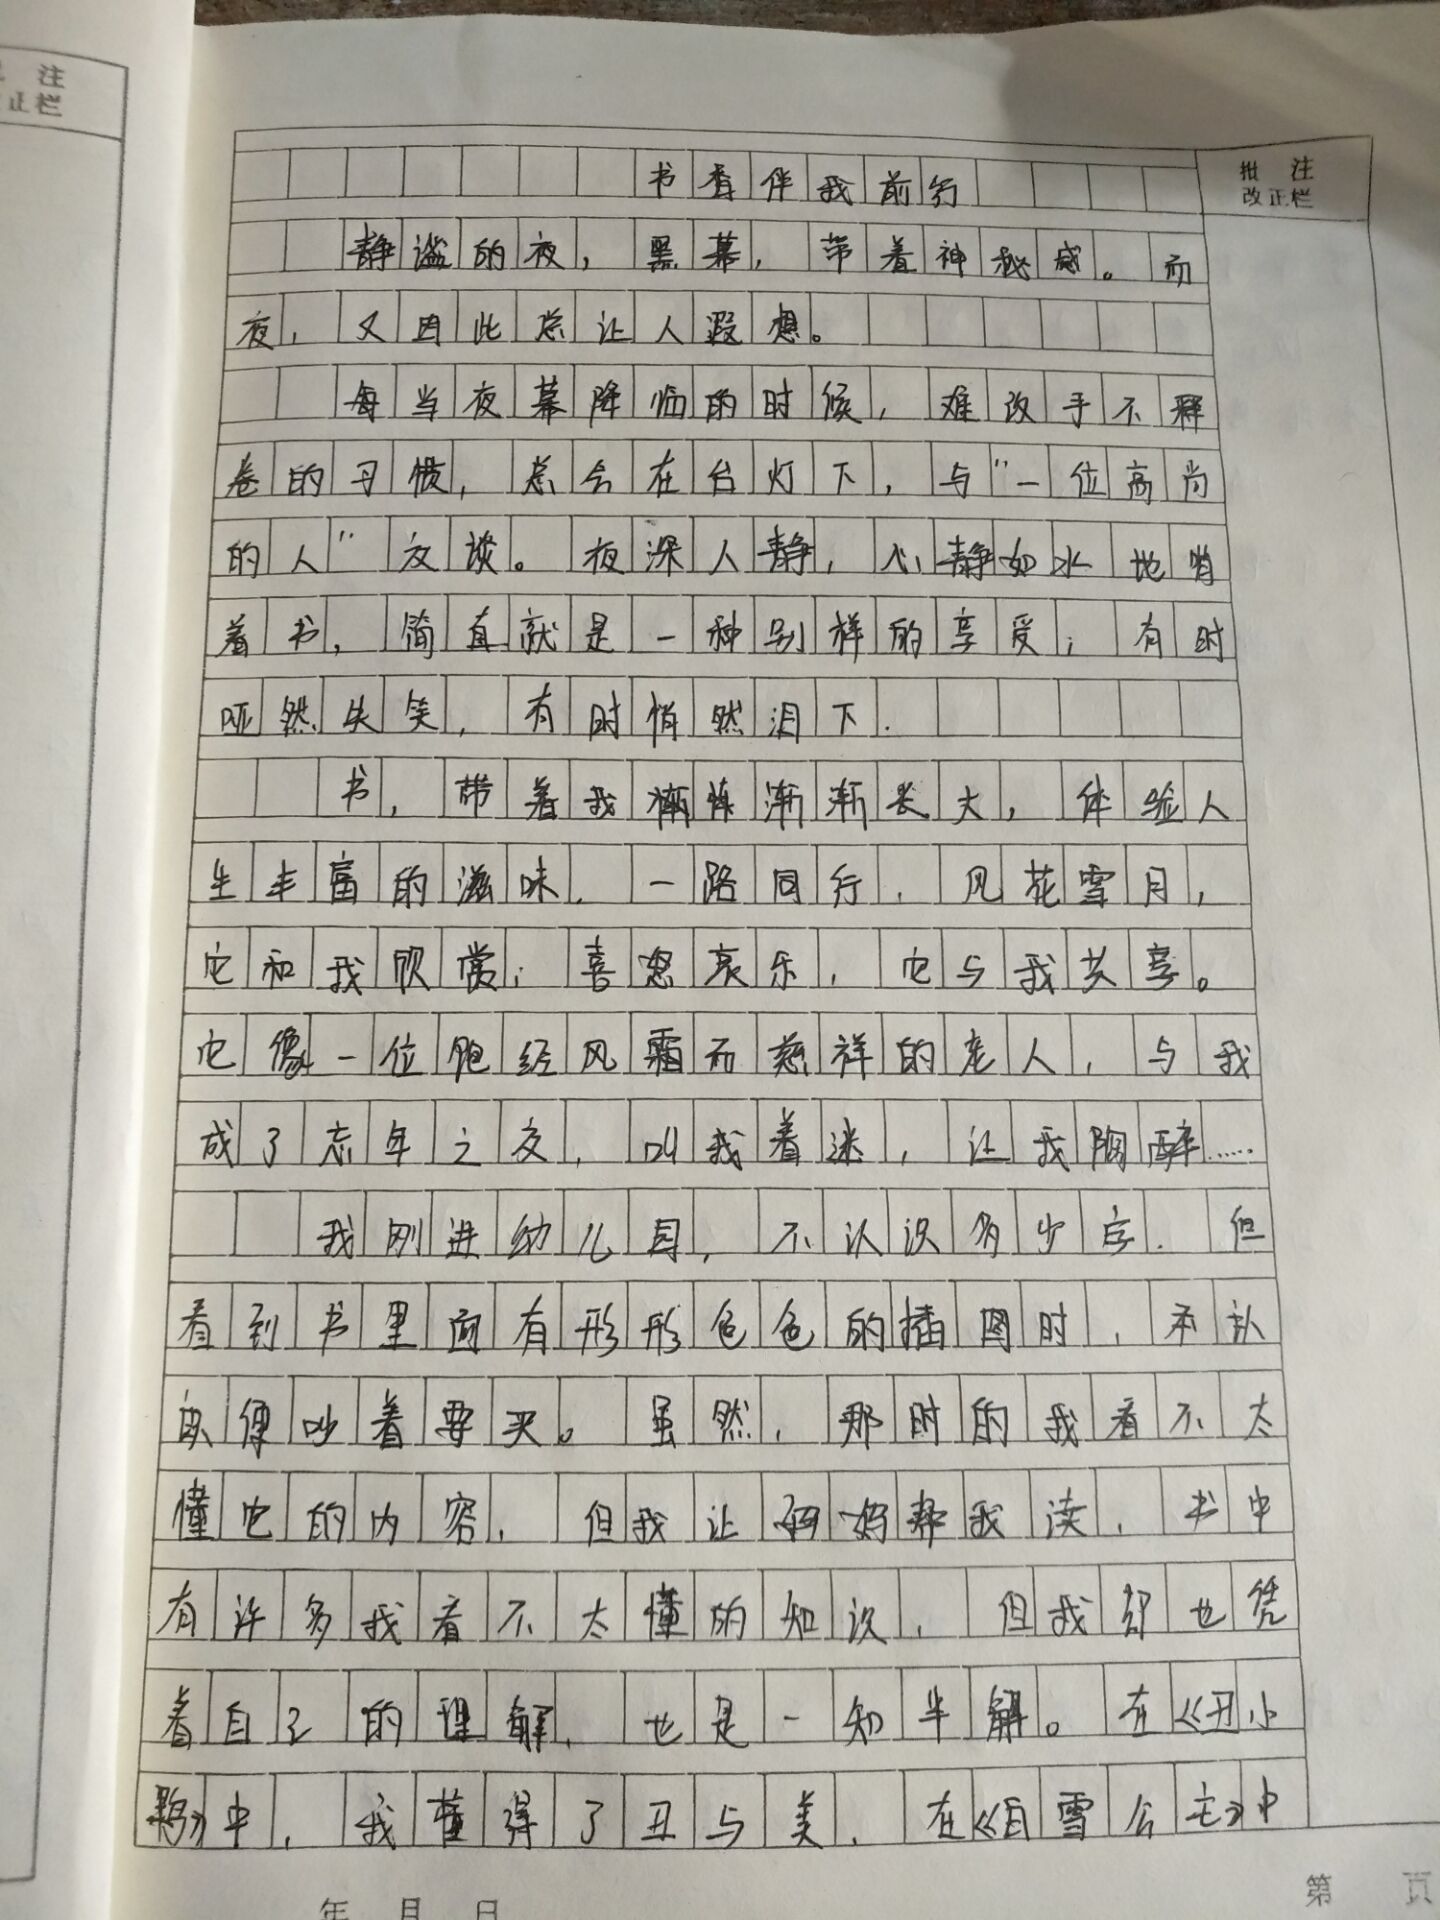 注
正栏
批 注
改正栏
书香伴我前行
静谧的夜，黑幕，带着神秘感。而
夜，又因此总让人遐想。
每当夜幕降临的时候，难改手不释
卷的习惯，总会在台灯下，与“一位高尚
的人”交谈。夜深人静，心静如水地啃
着书，简直就是一种别样的享受；有时
哑然失笑，有时悄然泪下．
书，带着我渐渐长大，体验人
生丰富的滋味．一路同行，风花雪月，
它和我欣赏；喜怒哀乐，它与我共享。
它像一位饱经风霜而慈祥的老人，与我
成了忘年之交，叫我着迷，让我陶醉……
我刚进幼儿园，不认识多少字．但
看到书里面有形形色色的插图时，
便吵着要买。虽然，那时的我看不太
懂它的内容，但我让妈妈帮我读，书中
有许多我看不太懂的知识，但我都也凭
着自己的理解，也是一知半解。在《丑小
鸭》中，我懂得了丑与美，在《白雪公主》中
年 月 日
第 页